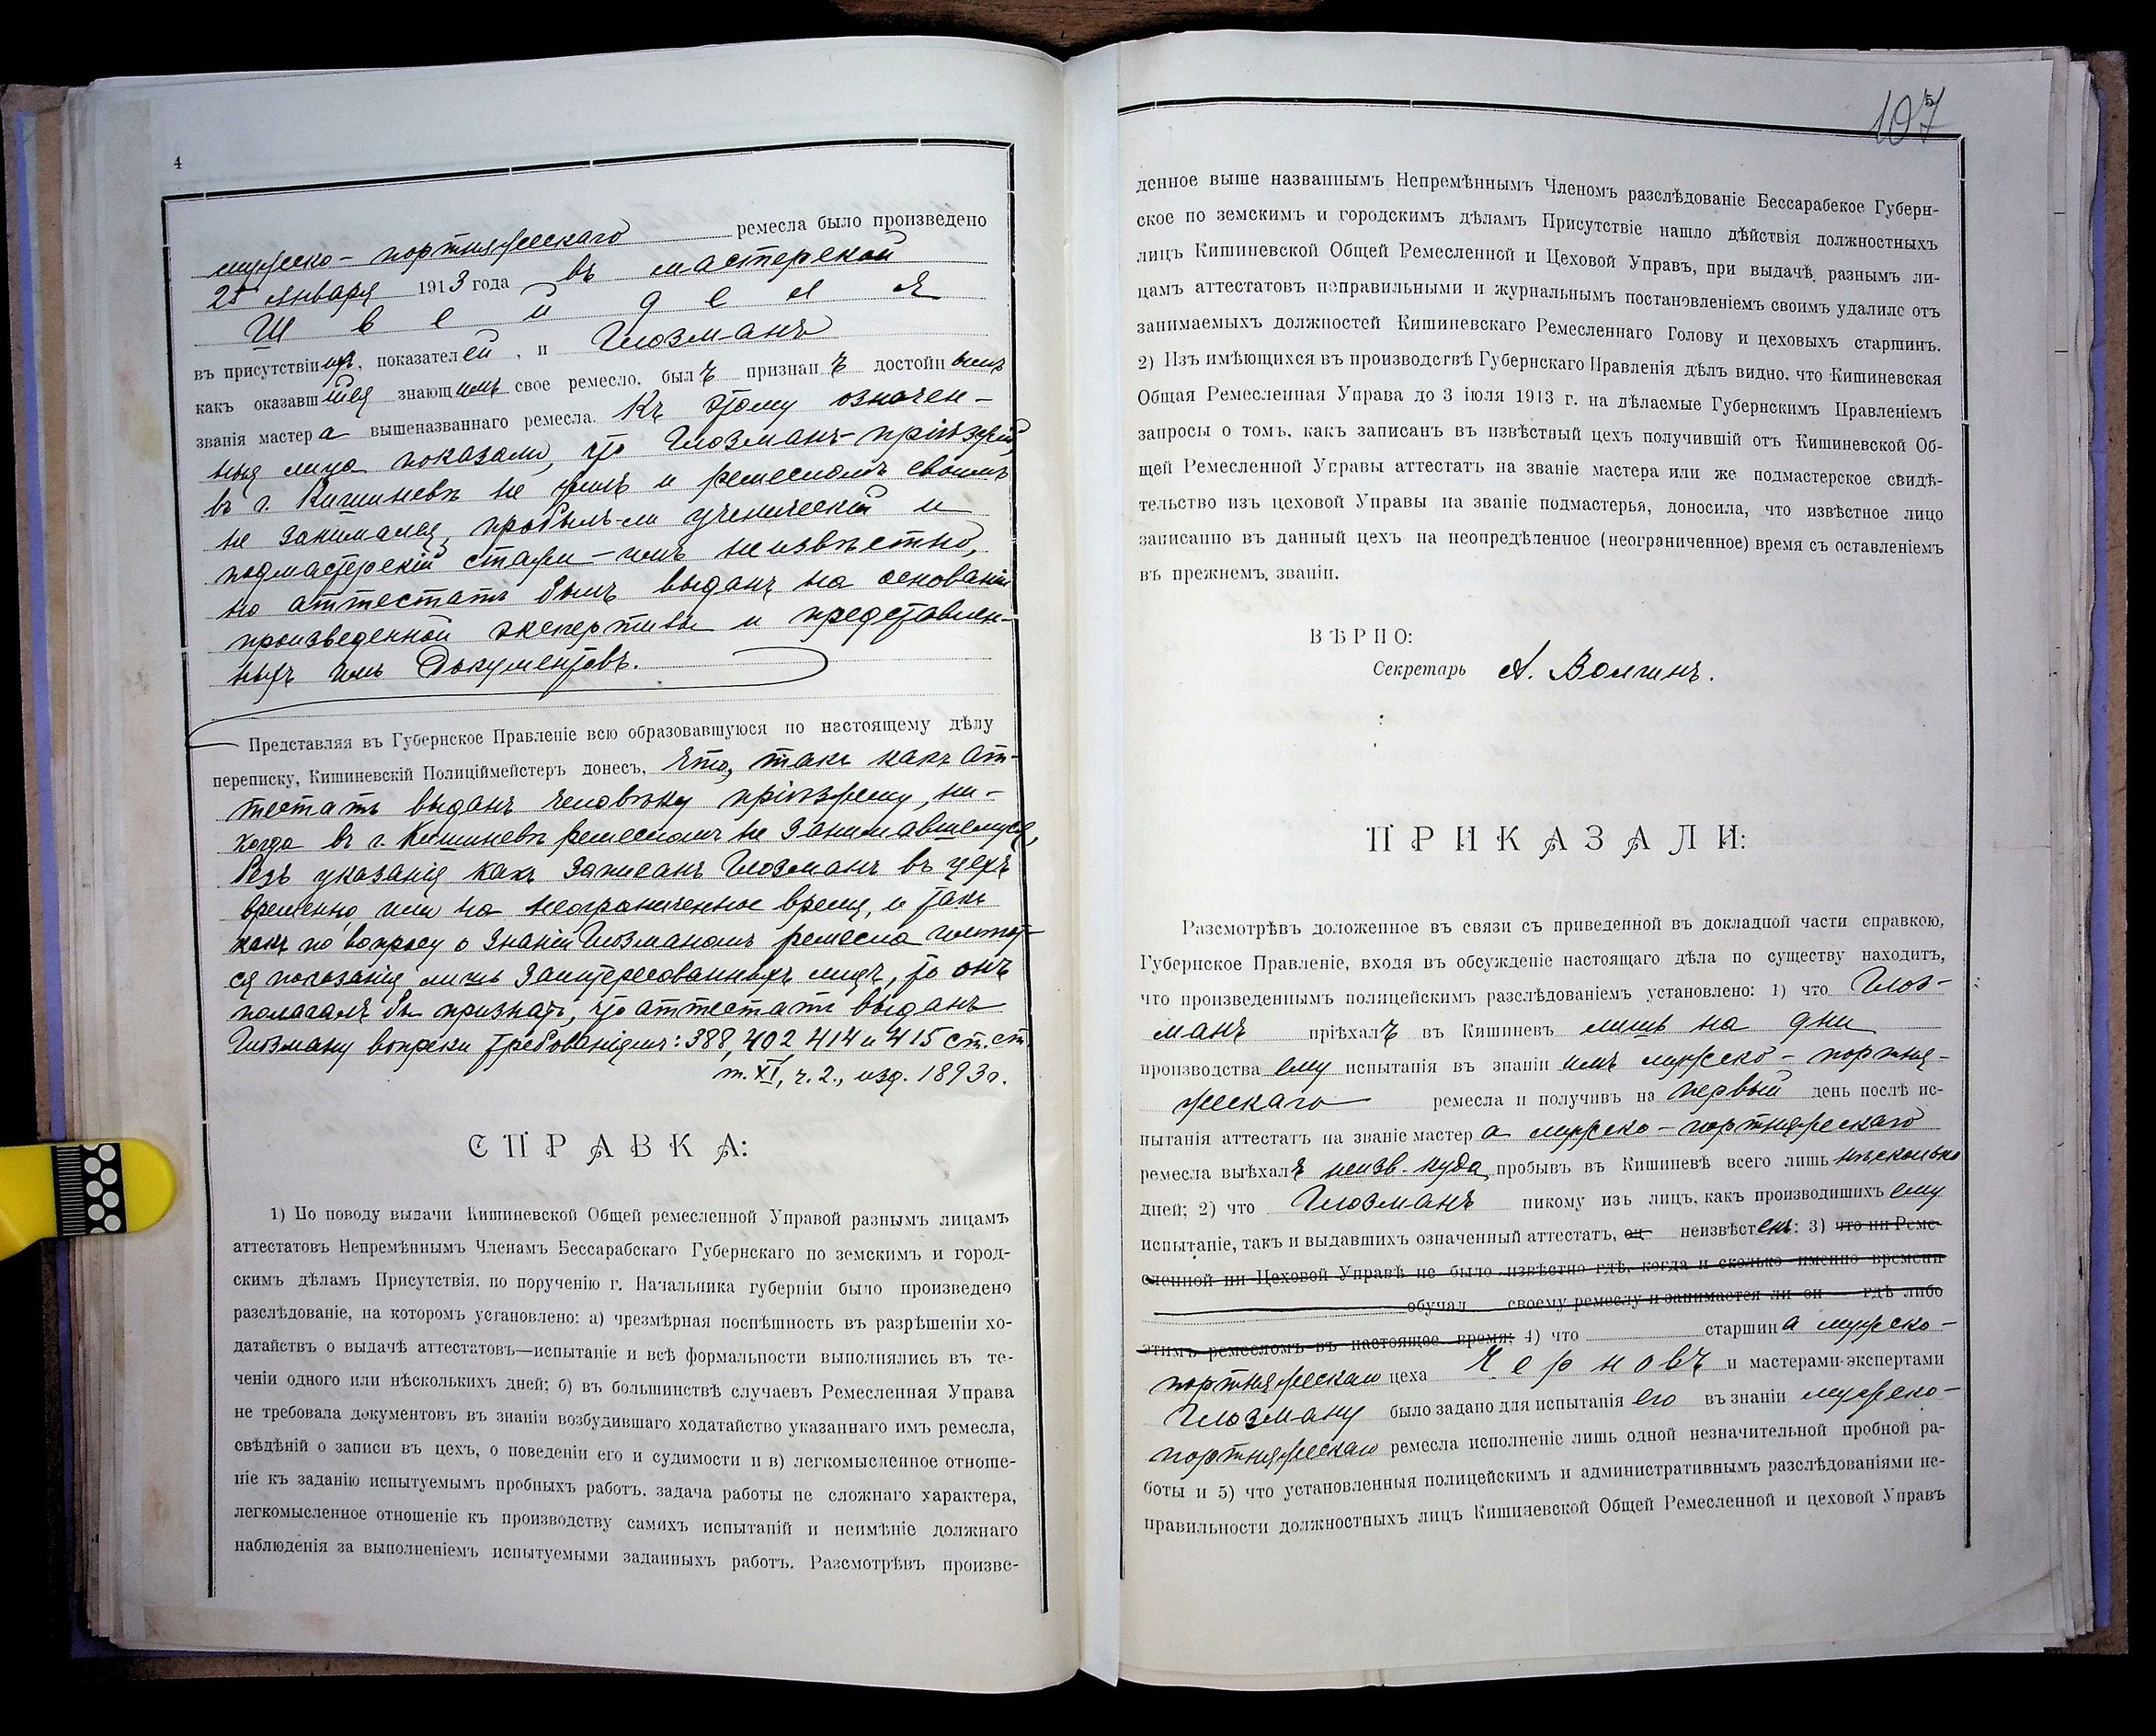 4
мужско-портняжескаго ремесла было произведено
25 Января 1913 года въ мастерской
Швейделя
въ присутствіи ихъ, показателей, и Глозманъ
какъ оказавшійся знающимъ свое ремесло, былъ признанъ достойнымъ
званія мастера вышеназваннаго ремесла. Къ этому означен-
ныя лица показали, что Глозманъ-пріѣзжій,
въ г. Кишиневѣ не жилъ и ремесломъ своимъ
не занимался, пробылъ-ли ученическій и
подмастерскій стажи-имъ неизвѣстно,
но аттестатъ былъ выданъ на основаніи
произведенной экспертизы и представлен-
ныхъ имъ документовъ.
Представляя въ Губернское Правленіе всю образовавшуюся по настоящему дѣлу
переписку, Кишиневскій Полиціймейстеръ донесъ, что, такъ какъ ат-
тестатъ выданъ человѣку пріѣзжему, ни-
когда въ г. Кишиневѣ ремесломъ не занимавшемуся,
безъ указанія какъ записанъ Глозманъ въ цехъ
временно или на неограниченное время, и такъ
какъ по вопросу о знаніи Глозманомъ ремесла имѣют-
ся показанія лишь заинтересованныхъ лицъ, то онъ
полагалъ бы признать, что аттестатъ выданъ
Глозману вопреки требованіямъ: 388, 402 414 и 415 ст. ст.
т. XI, ч. 2., изд. 1893 г.
СПРАВКА:
1) По поводу выдачи Кишиневской Общей ремесленной Управой разнымъ лицамъ
аттестатовъ Непремѣннымъ Членамъ Бессарабскаго Губернскаго по земскимъ и город-
скимъ дѣламъ Присутствія, по порученію г. Начальника губерніи было произведено
разслѣдованіе, на которомъ установлено: а) чрезмѣрная поспѣшность въ разрѣшеніи хо-
датайствъ о выдачѣ аттестатовъ—испытаніе и всѣ формальности выполнялись въ те-
ченіи одного или нѣсколькихъ дней; б) въ большинствѣ случаевъ Ремесленная Управа
не требовала документовъ въ знаніи возбудившаго ходатайство указаннаго имъ ремесла,
свѣдѣній о записи въ цехъ, о поведеніи его и судимости и в) легкомысленное отноше-
ніе къ заданію испытуемымъ пробныхъ работъ, задача работы не сложнаго характера,
легкомысленное отношеніе къ производству самихъ испытаній и неимѣніе должнаго
наблюденія за выполненіемъ испытуемыми заданныхъ работъ. Разсмотрѣвъ произве-
5
107
денное выше названнымъ Непремѣннымъ Членомъ разслѣдованіе Бессарабское Губерн-
ское по земскимъ и городскимъ дѣламъ Присутствіе нашло дѣйствія должностныхъ
лицъ Кишиневской Общей Ремесленной и Цеховой Управъ, при выдачѣ разнымъ ли-
цамъ аттестатовъ неправильными и журнальнымъ постановленіемъ своимъ удалило отъ
занимаемыхъ должностей Кишиневскаго Ремесленнаго Голову и цеховыхъ старшинъ.
2) Изъ имѣющихся въ производствѣ Губернскаго Правленія дѣлъ видно, что Кишиневская
Общая Ремесленная Управа до 3 іюля 1913 г. на дѣлаемые Губернскимъ Правленіемъ
запросы о томъ, какъ записанъ въ извѣстный цехъ получившій отъ Кишиневской Об-
щей Ремесленной Управы аттестатъ на званіе мастера или же подмастерское свидѣ-
тельство изъ цеховой Управы на званіе подмастерья, доносила, что извѣстное лицо
записанно въ данный цехъ на неопредѣленное (неограниченное) время съ оставленіемъ
въ прежнемъ званіи.
ВѢРНО:
Секретарь А. Волгинъ.
ПРИКАЗАЛИ:
Разсмотрѣвъ доложенное въ связи съ приведенной въ докладной части справкою,
Губернское Правленіе, входя въ обсужденіе настоящаго дѣла по существу находитъ,
что произведеннымъ полицейскимъ разслѣдованіемъ установлено: 1) что Глоз-
манъ пріѣхалъ въ Кишиневъ лишь на дни
производства ему испытанія въ знаніи имъ мужско-портня-
жескаго ремесла и получивъ на первый день послѣ ис-
пытанія аттестатъ на званіе мастера мужско-портняжескаго
ремесла выѣхалъ неизв. куда, пробывъ въ Кишиневѣ всего лишь нѣсколько
дней; 2) что Глозманъ никому изъ лицъ, какъ производившихъ ему
испытаніе, такъ и выдавшихъ означенный аттестатъ, он неизвѣстенъ: 3) что ни Реме-
сленной ни Цеховой Управѣ не было извѣстно гдѣ, когда и сколько именно времени
обучал своему ремеслу и занимается ли он гдѣ либо
этимъ ремесломъ въ настоящее время; 4) что старшина мужско-
портняжескаго цеха Черновъ и мастерами-экспертами
Глозману было задано для испытанія его въ знаніи мужско-
портняжескаго ремесла исполненіе лишь одной незначительной пробной ра-
боты и 5) что установленныя полицейскимъ и административнымъ разслѣдованіями не-
правильности должностныхъ лицъ Кишиневской Общей Ремесленной и цеховой Управъ